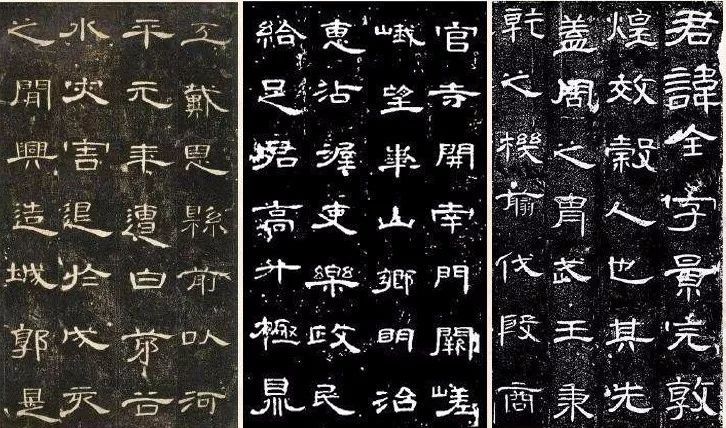 君諱全字景完敦
煌效穀人也其先
蓋周之胄武王秉
乾之機翦伐殷商
官寺開南門闕嵯
峨望華山鄉明治
惠沾渥吏樂政民
給足君高升極鼎
工戴恩縣前以河
平元年遭白茅谷
水灾害退於戌亥
之間興造城郭是